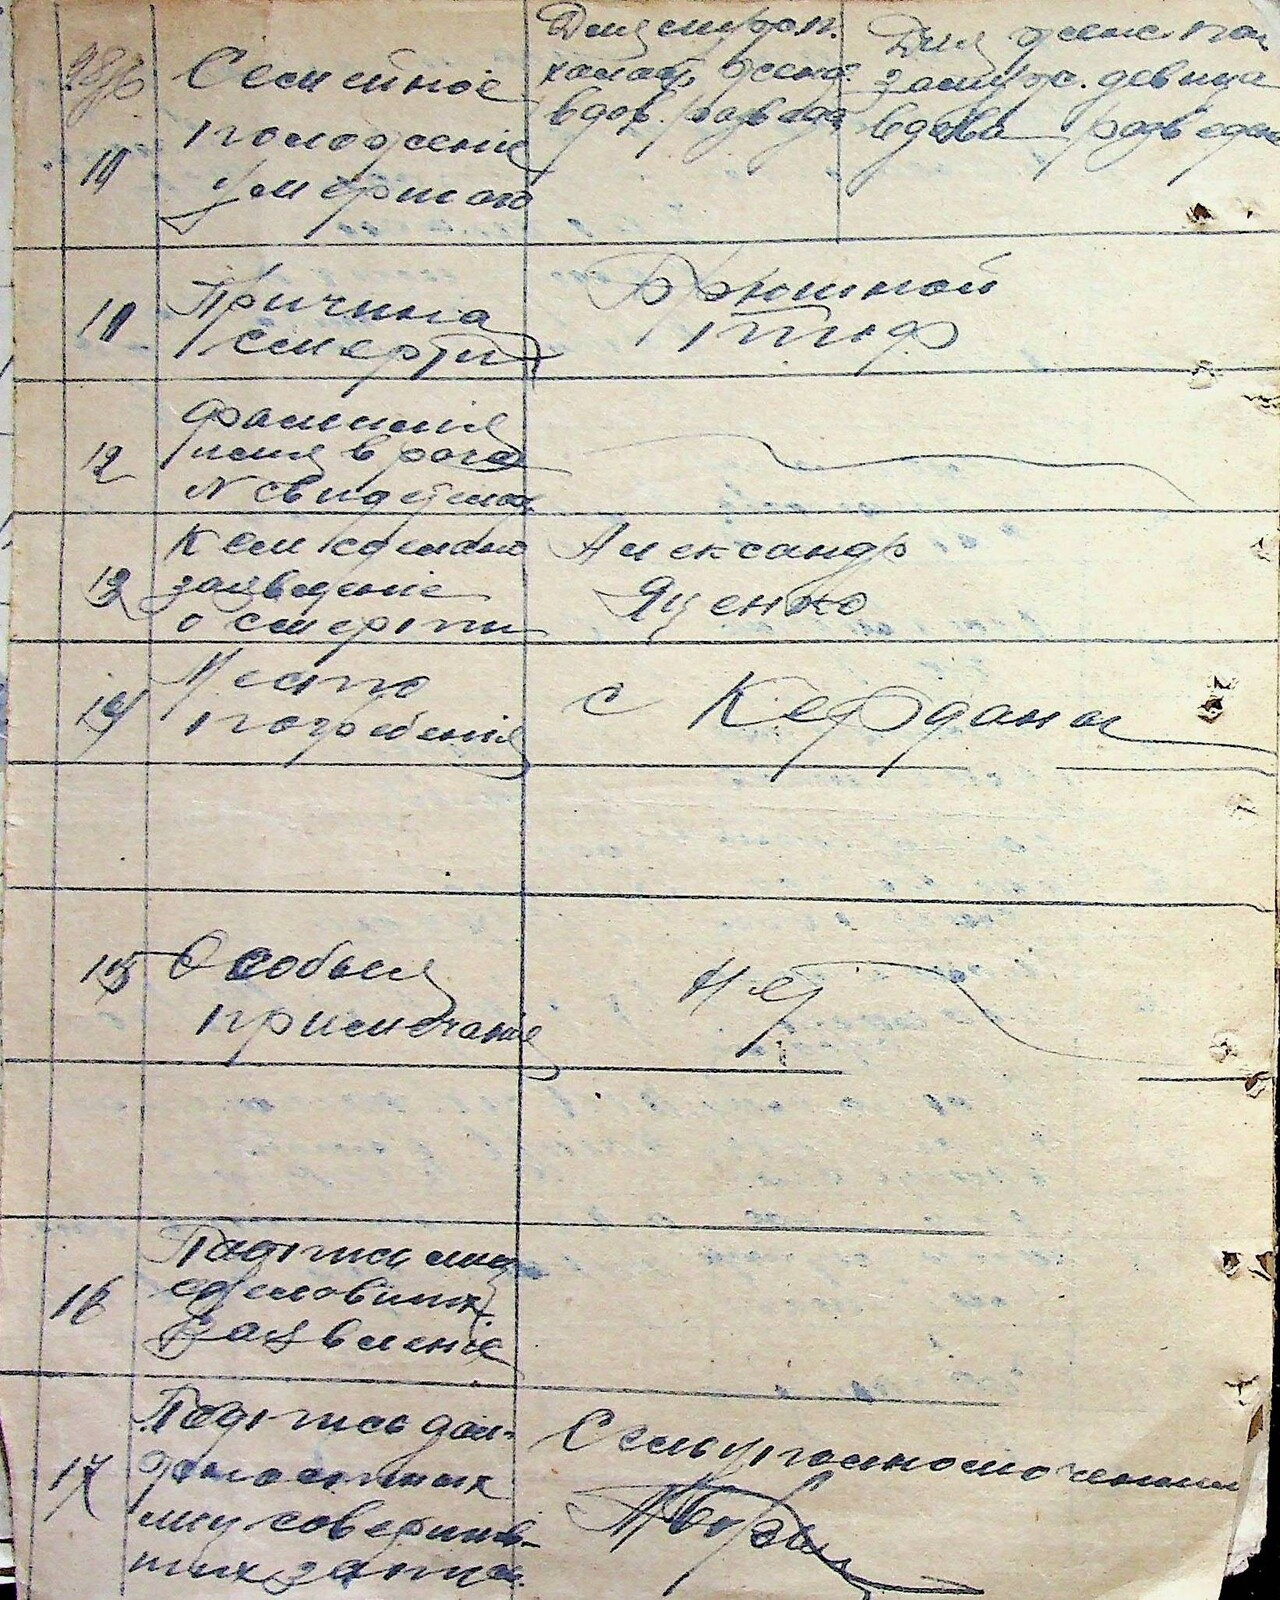 10
Семейное
положение
умершого
Для мужч.
холост, женат
вдов. разведе
Для женс пол
замуж. девица
вдова разведен
11
Причина
смерти
Брюшной
тиф
12
Фамилия
имя врача
N свидетел
13
Кем сделано
заявление
о смерти
Александр
Яценко
14
Место
погребения
с Керданы
15
Особыя
примечание
Нет
16
Подпись лиц
сделовших
заявление
17
Подпись дол-
жностных
лиц соверши-
ших запис
Сельуполномоченный